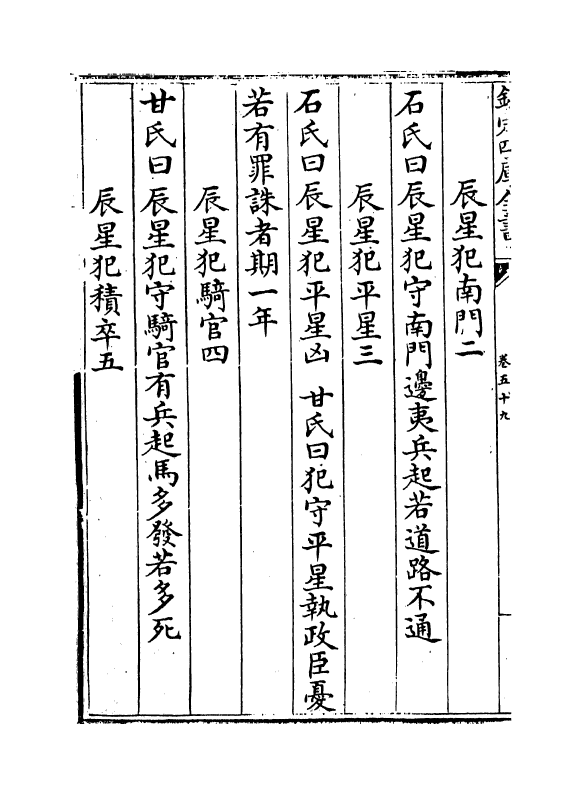 欽定四庫全書
卷五十九
辰星犯南門二
石氏曰辰星犯守南門邊夷兵起若道路不通
辰星犯平星三
石氏曰辰星犯平星凶 甘氏曰犯守平星執政臣憂
若有罪誅者期一年
辰星犯騎官四
甘氏曰辰星犯守騎官有兵起馬多發若多死
辰星犯積卒五